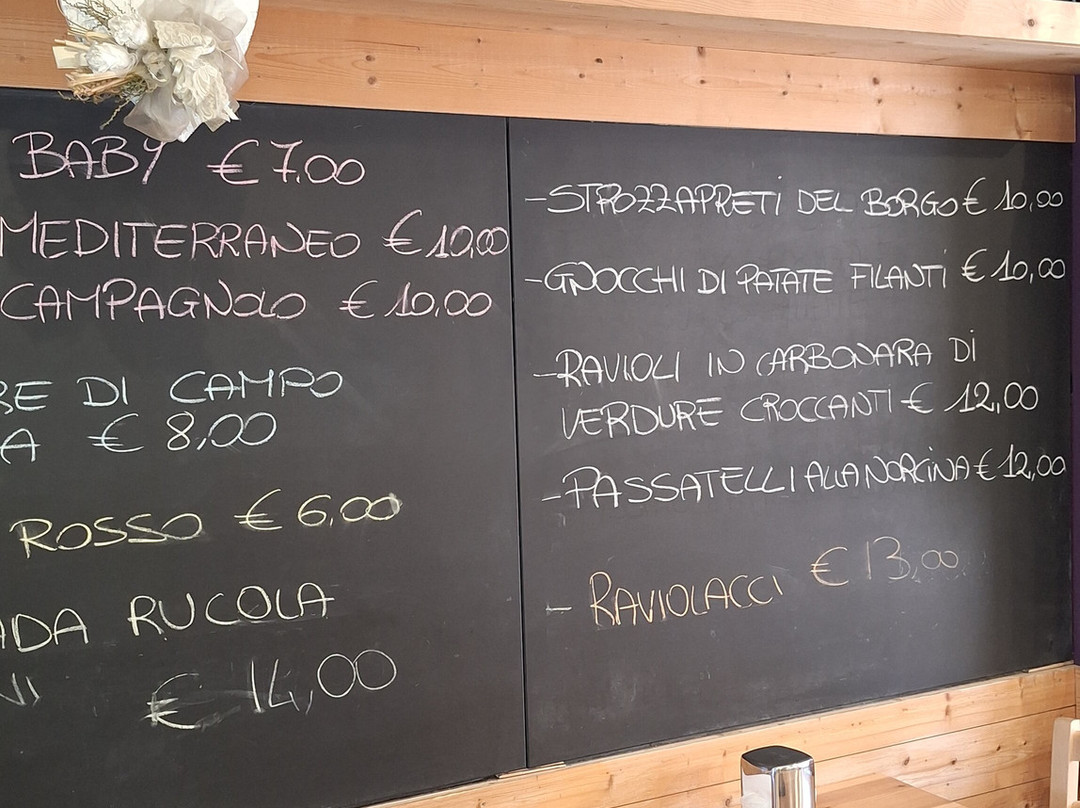 BABY € 7.00
MEDITERRANEO € 10,00
CAMPAGNOLO € 10.00
RE DI CAMPO
A € 8,00
ROSSO € 6,00
ADA RUCOLA
NI
€ 14,00
-STROZZAPRETI DEL BORGO € 10,00
-GNOCCHI DI PATATE FILANTI € 10,00
-RAVIOLI IN CARBONARA DI
VERDURE CROCCANTI € 12,00
-PASSATELLI ALLA NORCINA € 12,00
- RAVIOLACCI € 13,00